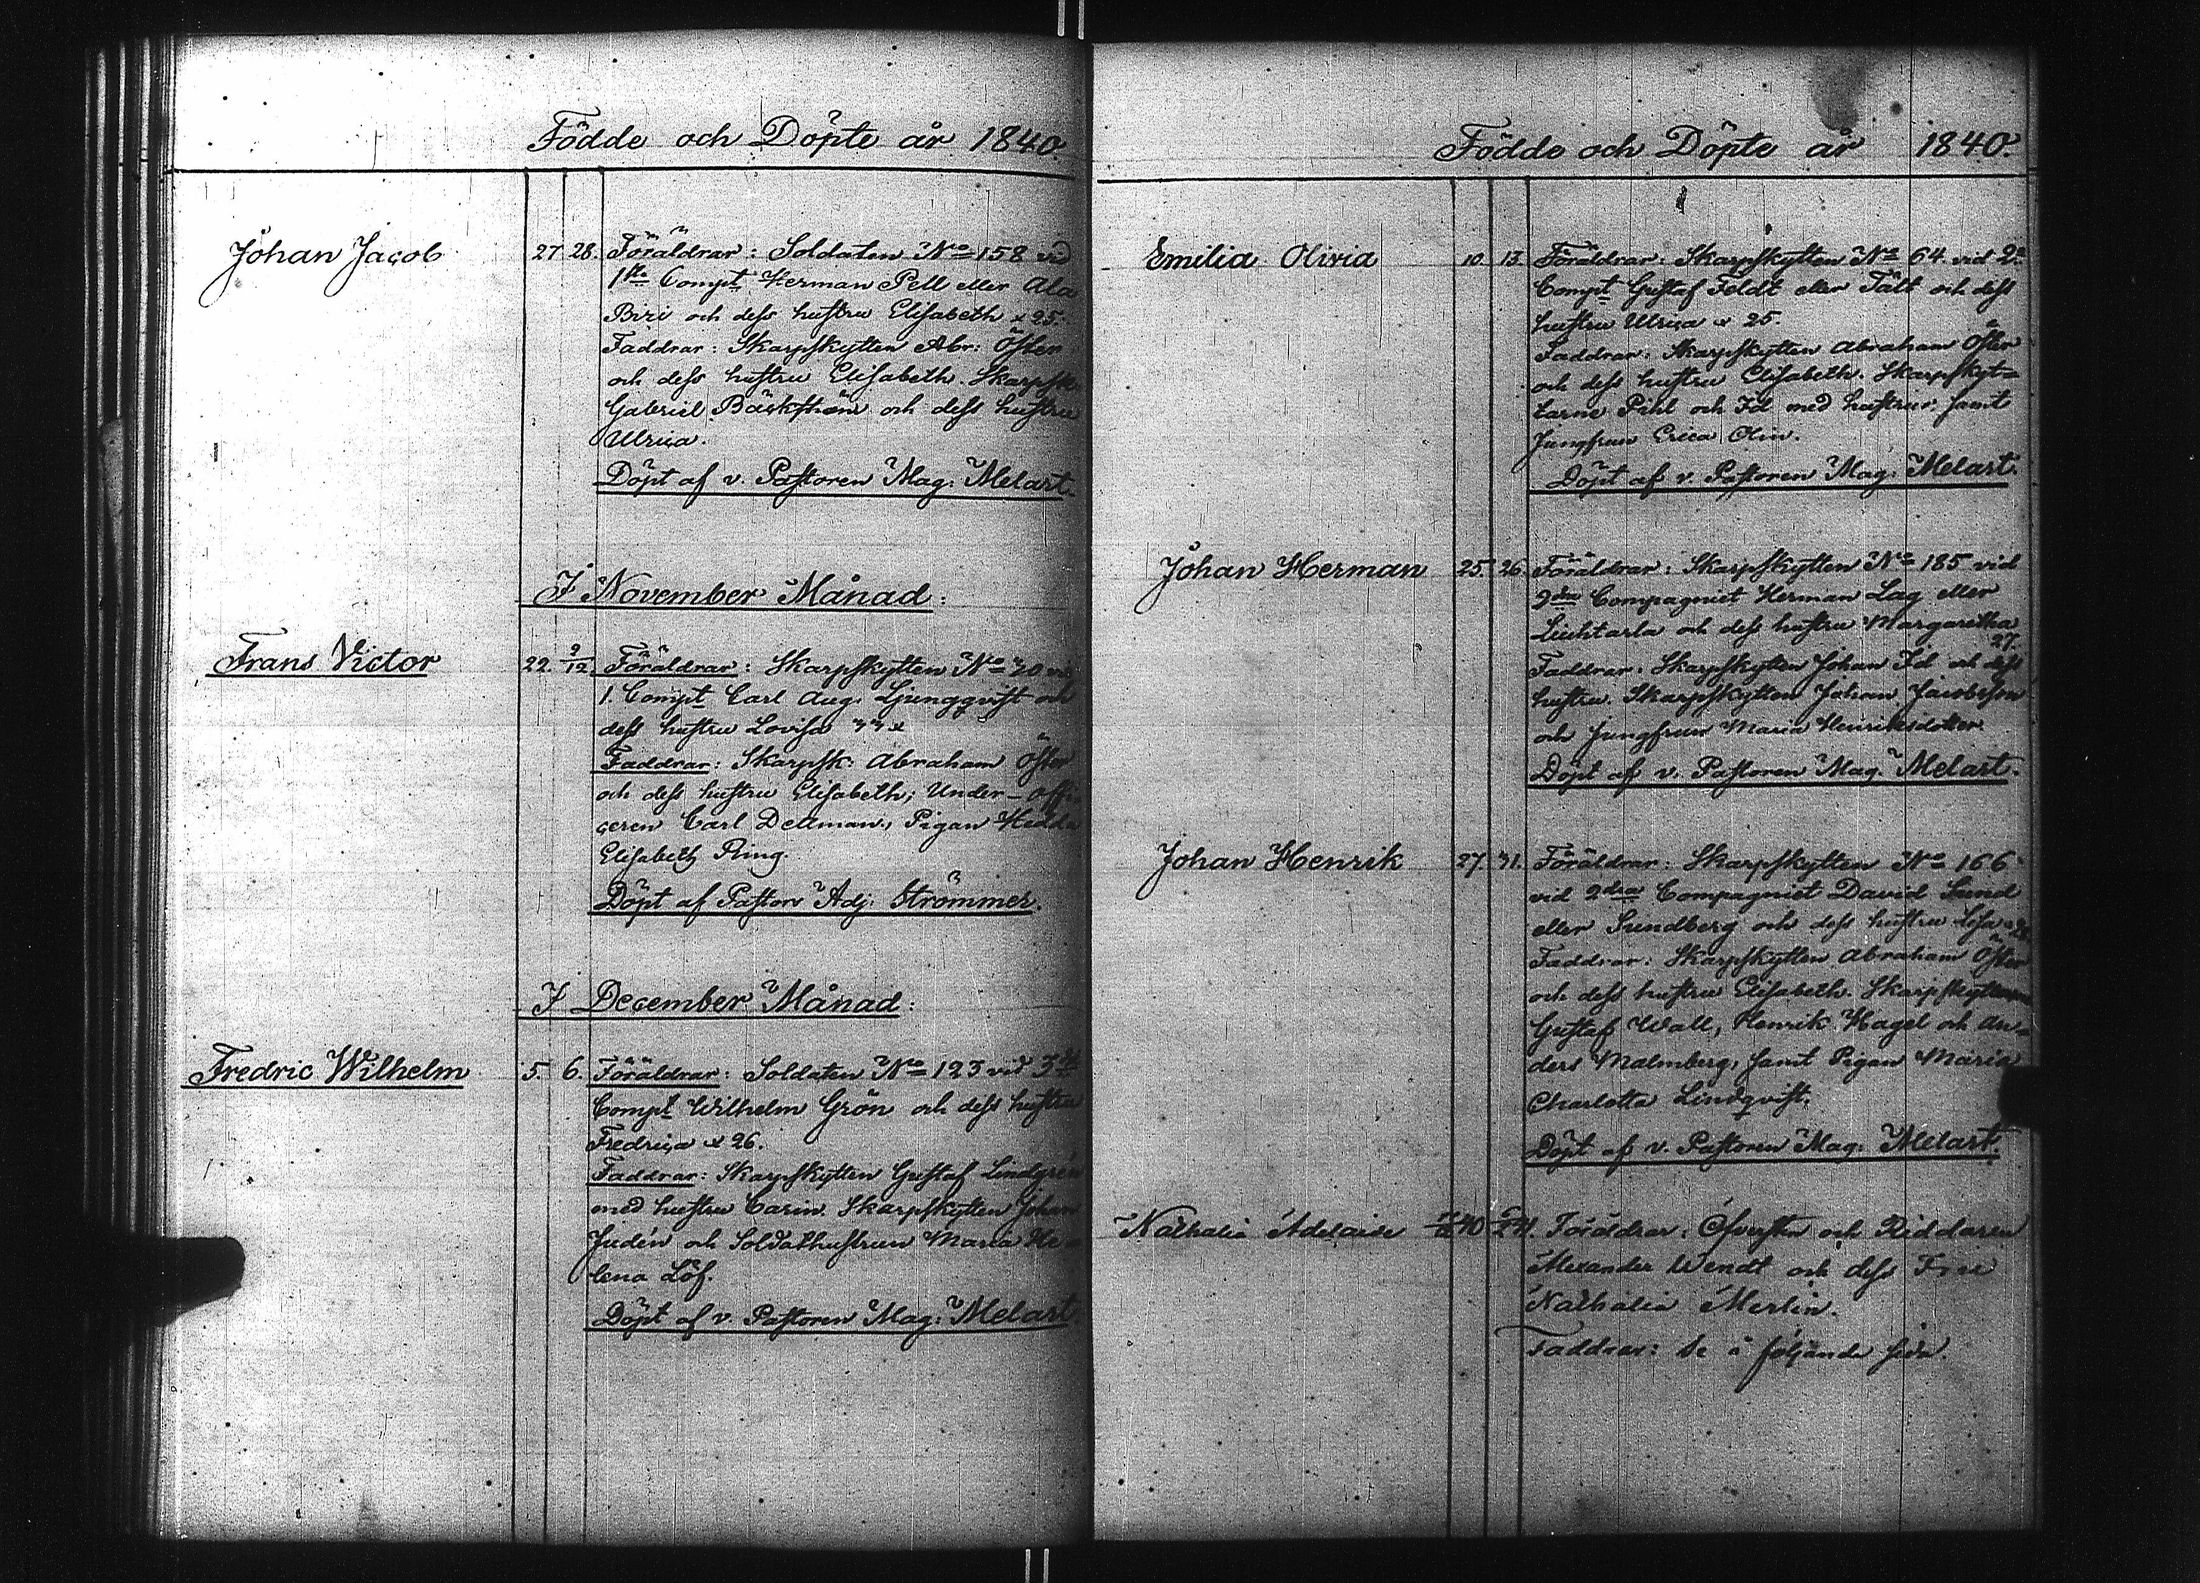 Födde och Döpte år 1840.
Johan Jacob 27 28. Föräldrar: Soldaten No 158 vid
1sta Compt Herman Pell eller Ala
Biri och dess hustru Elisabeth x 25.
Faddrar: Skarpskytten Abr: Öster
och dess hustru Elisabeth. Skarpsk
Gabriel Bäckström och dess hustru
Ulrica.
Döpt af v. Pastoren Mag: Melart.
I November Månad:
Frans Victor 22. 2/12 Föräldrar: Skarpskytten No 30 vid
1. Compt Carl Aug. Ljungqvist och
dess hustru Lovisa 33 x
Faddrar: Skarpsk: Abraham Öster
och dess hustru Elisabeth; Under-offi
ceren Carl Dellman, Pigan Hedda
Elisabeth Ring.
Döpt af Pastors Adj: Strömmer.
I December Månad:
Fredric Wilhelm 5. 6. Föräldrar: Soldaten No 123 vid 3
Compt Wilhelm Grön och dess hustru
Fredrica x 26.
Faddrar: Skarpskytten Gustaf Lindgren
med hustru Carin. Skarpskytten Johan
Judén och Soldathustrun Maria He
lena Löf.
Döpt af v. Pastoren Mag: Melart
Födde och Döpte år 1840.
Emilia Olivia 10. 13. Föräldrar: Skarpskytten No 64 vid 2a
Compt Gustaf Feldt eller Tält och dess
hustru Ulrica x 25.
Faddrar: Skarpskytten Abraham Öster
och dess hustru Elisabeth. Skarpskyt=
tarne Pihl och Id med hustrur, samt
Jungfrun Erica Olin.
Döpt af v. Pastoren Mag: Melart.
Johan Herman 25. 26. Föräldrar: Skarpskytten No 185 vid
2dra Compagniet Herman Lag eller
och dess hustru Margaretha
27.
Faddrar: Skarpskytten Johan Id och dess
hustru. Skarpskytten Johan Jacobsson
och Jungfrun Maria Henriksdotter.
Döpt af v. Pastoren Mag. Melart.
Johan Henrik 27. 31. Föräldrar: Skarpskytten No 166
vid 2dra Compagniet David Sund
eller Sundberg och dess hustru Lisa
Faddrar: Skarpskytten Abraham Öster
och dess hustru Elisabeth. Skarpskyttarne
Gustaf Wall, Henrik Hagel och An=
ders Malmberg, samt Pigan Maria
Charlotta Lindqvist.
Döpt af v. Pastoren Mag: Melart.
Nathalia Adelaide 40 41. Föräldrar: Öfversten och Riddaren
Alexander Wendt och dess Fru
Nathalia Merlin.
Faddrar: Se å följande sida.